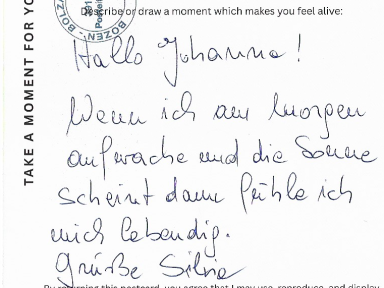 Describe or draw a moment which makes you feel alive:
TAKE A MOMENT FOR YO
BOZEN - BOLZA
Hallo Johanna!
Wenn ich am Morgen
aufwache und die Sonne
scheint dann fühle ich
mich lebendig.
Grüße Silvia
By returning this postcard, you agree that I may use, reproduce, and display